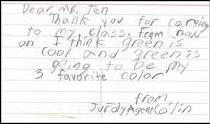 Dear Mr. Ten
Thank you for coming
to my class, from now
on I think green is
cool and green is
going to be my
3 favorite color
from,
Collin